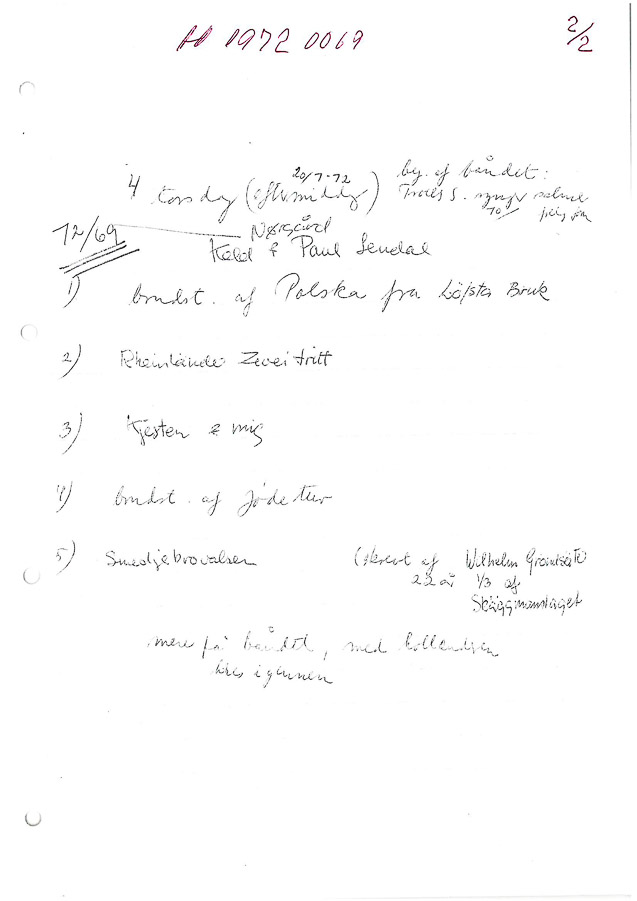 H 1972 0069
2/2
20/7-72
4 torsdag (eftermiddag)
beg. af båndet:
Troels S. synger
70/
72/69
Nørgård
Keld & Paul Sendal
1) brudst. af Polska fra Löfsta Bruk
2) Rheinländer Zweitritt
3) Kjesten & mig
4) brudst. af Jødetur
5) Smedjebrovalsen (skrevet af Wilhelm
22 år 1/3 af
Skäggmanslaget
mere på båndet, med
høres igennem